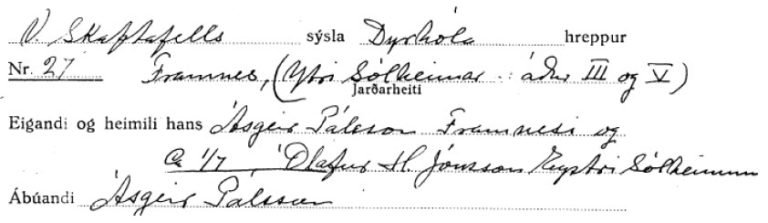 V. Skaftafells sýsla Dyrhóla hreppur
Nr. 27 Framnes, (Ytri Sólheimar áður III og V)
Jarðarheiti
Eigandi og heimili hans Ásgeir Pálsson Framnesi og
Ca 1/7 Ólafur H. Jónsson Eystri Sólheimum
Ábúandi Ásgeir Pálsson